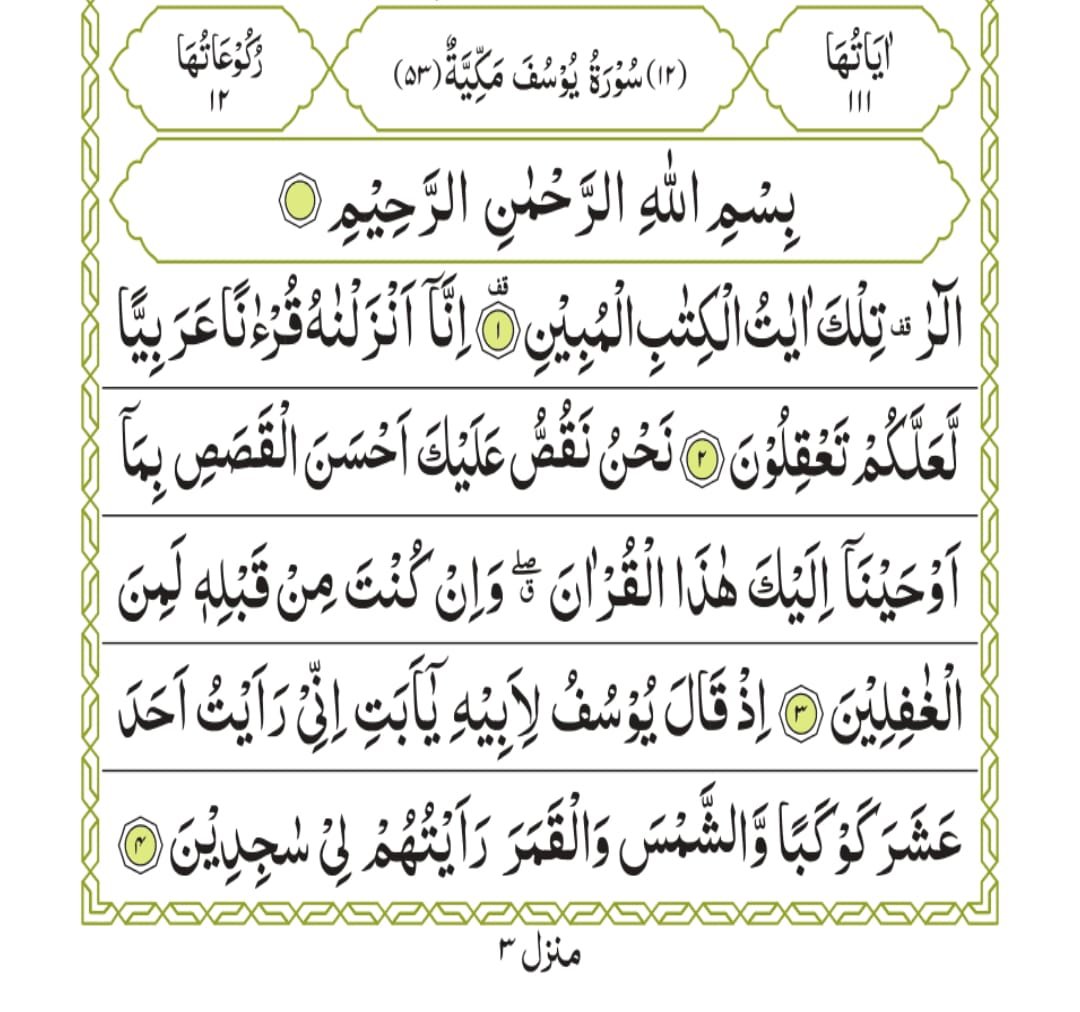 اٰيَاتُهَا ١١١ (١٢) سُوْرَةُ يُوْسُفَ مَكِّيَّةٌ (٥٣) رُكُوْعَاتُهَا ١٢
بِسْمِ اللّٰهِ الرَّحْمٰنِ الرَّحِيْمِ
الٓرٰ ۫ تِلْكَ اٰيٰتُ الْكِتٰبِ الْمُبِيْنِ ۟۫ ١ اِنَّاۤ اَنْزَلْنٰهُ قُرْءٰنًا عَرَبِيًّا
لَّعَلَّكُمْ تَعْقِلُوْنَ ٢ نَحْنُ نَقُصُّ عَلَيْكَ اَحْسَنَ الْقَصَصِ بِمَاۤ
اَوْحَيْنَاۤ اِلَيْكَ هٰذَا الْقُرْاٰنَ ۖۗ وَاِنْ كُنْتَ مِنْ قَبْلِهٖ لَمِنَ
الْغٰفِلِيْنَ ٣ اِذْ قَالَ يُوْسُفُ لِاَبِيْهِ يٰۤاَبَتِ اِنِّيْ رَاَيْتُ اَحَدَ
عَشَرَ كَوْكَبًا وَّالشَّمْسَ وَالْقَمَرَ رَاَيْتُهُمْ لِيْ سٰجِدِيْنَ ۴
منزل ٣